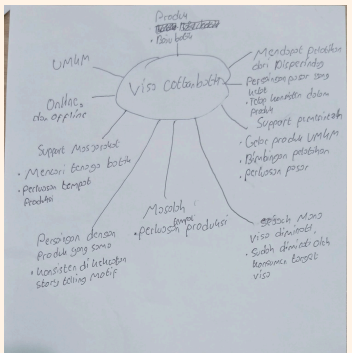 Produk
• Baju batik
Viso Cottonbatik
UMKM
Online
dan offline
Support Masyarakat
• Mencari tenaga batik
• perluasan tempat
Produksi
Persaingan dengan
Produk yang sama
• Konsisten di kekuatan
story telling motif
Masalah :
tempat
• perluasan produksi
Sejauh Mana
Viso diminati,
• Sudah diminati oleh
konsumen target
viso
Mendapat pelatihan
dari Disperindag
Persaingan pasar yang
ketat
• Tetap konsisten dalam
produk
Support pemerintah
• Gelar produk UMKM
• Bimbingan pelatihan
• perluasan pasar